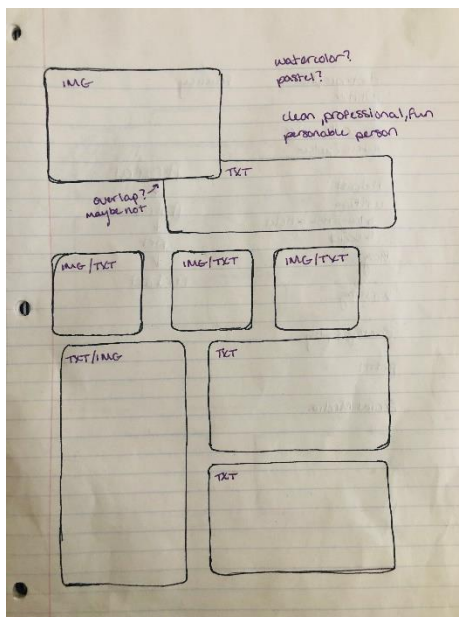 IMG
watercolor?
pastel?
clean, professional, fun
personable person
TXT
overlap?
maybe not
IMG/TXT
IMG/TXT
IMG/TXT
TXT/IMG
TXT
TXT